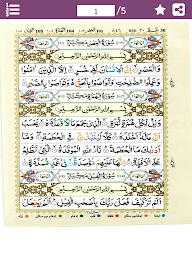 1 /5
سُورَةُ الْعَصْرِ مَكِّيَّةٌ
بِسْمِ اللَّهِ الرَّحْمَٰنِ الرَّحِيمِ
وَالْعَصْرِ إِنَّ الْإِنْسَانَ لَفِي خُسْرٍ إِلَّا الَّذِينَ آمَنُوا
وَعَمِلُوا الصَّالِحَاتِ وَتَوَاصَوْا بِالْحَقِّ وَتَوَاصَوْا بِالصَّبْرِ
سُورَةُ الْهُمَزَةِ مَكِّيَّةٌ
بِسْمِ اللَّهِ الرَّحْمَٰنِ الرَّحِيمِ
وَيْلٌ لِكُلِّ هُمَزَةٍ لُمَزَةٍ الَّذِي جَمَعَ مَالًا وَعَدَّدَهُ يَحْسَبُ
أَنَّ مَالَهُ أَخْلَدَهُ كَلَّا لَيُنْبَذَنَّ فِي الْحُطَمَةِ وَمَا
أَدْرَاكَ مَا الْحُطَمَةُ نَارُ اللَّهِ الْمُوقَدَةُ الَّتِي تَطَّلِعُ
عَلَى الْأَفْئِدَةِ إِنَّهَا عَلَيْهِمْ مُؤْصَدَةٌ فِي عَمَدٍ مُمَدَّدَةٍ
سُورَةُ الْفِيلِ مَكِّيَّةٌ
بِسْمِ اللَّهِ الرَّحْمَٰنِ الرَّحِيمِ
أَلَمْ تَرَ كَيْفَ فَعَلَ رَبُّكَ بِأَصْحَابِ الْفِيلِ أَلَمْ